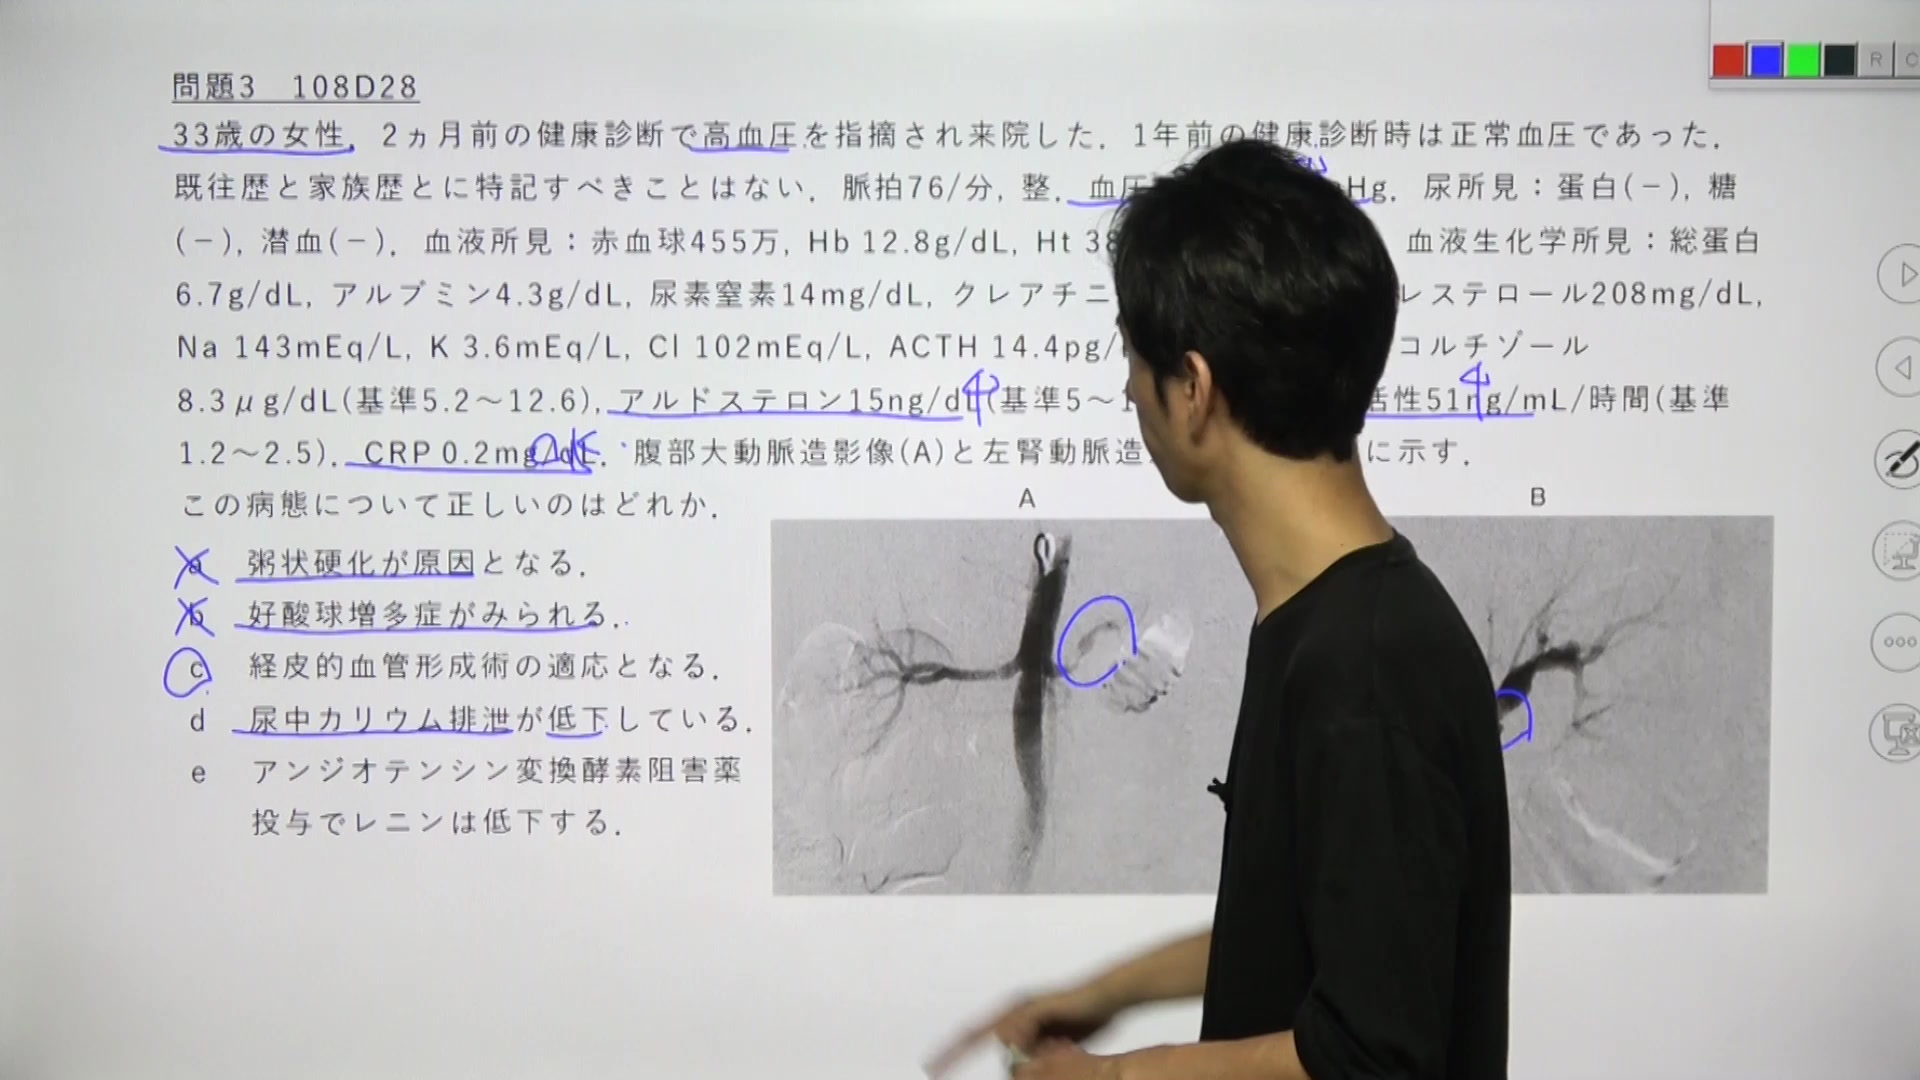 問題3 108D28
33歳の女性．2ヵ月前の健康診断で高血圧を指摘され来院した．1年前の健康診断時は正常血圧であった．
既往歴と家族歴とに特記すべきことはない．脈拍76/分, 整．血圧 Hg．尿所見：蛋白(−), 糖
(−), 潜血(−)．血液所見：赤血球455万, Hb 12.8g/dL, Ht 38 血液生化学所見：総蛋白
6.7g/dL, アルブミン4.3g/dL, 尿素窒素14mg/dL, クレアチニ レステロール208mg/dL,
Na 143mEq/L, K 3.6mEq/L, Cl 102mEq/L, ACTH 14.4pg/ コルチゾール
8.3μg/dL(基準5.2〜12.6), アルドステロン15ng/dL(基準5〜1 活性51ng/mL/時間(基準
1.2〜2.5)．CRP 0.2mg/dL．腹部大動脈造影像(A)と左腎動脈造 に示す．
この病態について正しいのはどれか．
A
B
a 粥状硬化が原因となる．
b 好酸球増多症がみられる．
c 経皮的血管形成術の適応となる．
d 尿中カリウム排泄が低下している．
e アンジオテンシン変換酵素阻害薬
投与でレニンは低下する．
R
C